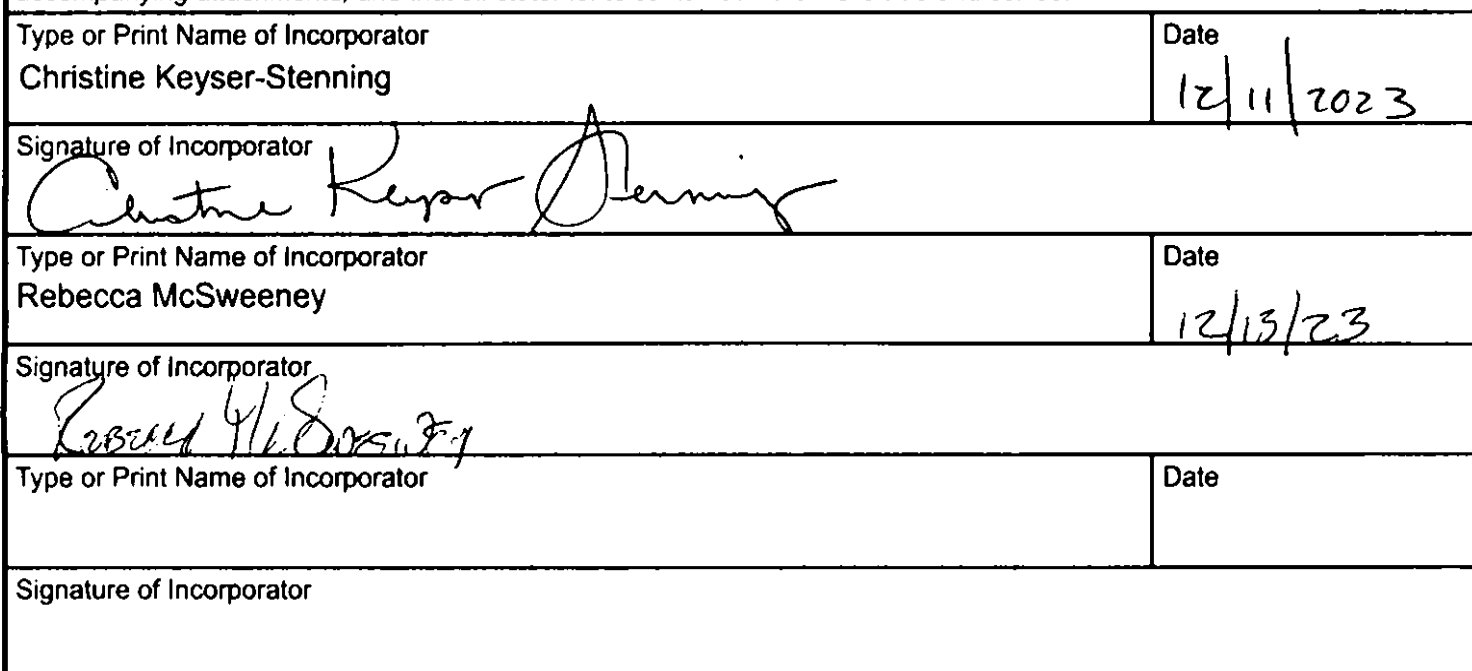 Type or Print Name of Incorporator
Date
Christine Keyser-Stenning
12/11/2023
Signature of Incorporator
Christine Keyser Stenning
Type or Print Name of Incorporator
Date
Rebecca McSweeney
12/13/23
Signature of Incorporator
Rebecca McSweeney
Type or Print Name of Incorporator
Date
Signature of Incorporator